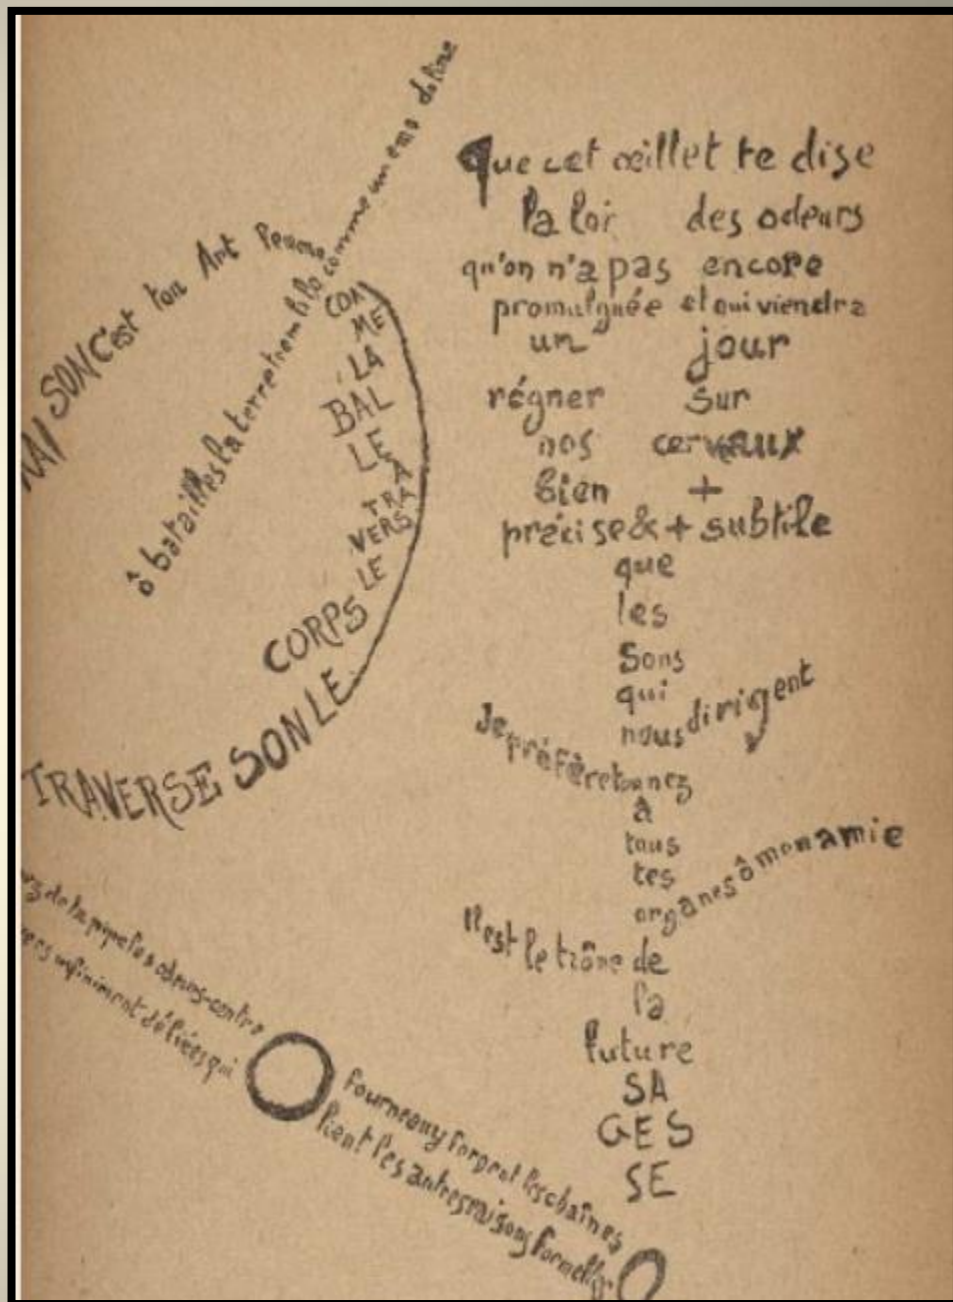 ô batailles la terre tremble comme une mandoline
COM
ME
LA
BAL
LE
À
TRA
VERS
LE
CORPS
TRAVERSE SON LE
SON C'est ton Art Femme
Que cet œillet te dise
la loi des odeurs
qu'on n'a pas encore
promulguée et qui viendra
un jour
régner sur
nos cerveaux
bien +
précise & + subtile
que
les
sons
qui
nous dirigent
Je préfère ton nez
à
tous
tes
organes ô mon amie
Il est le trône de
la
future
SA
GES
SE
de la pipe les odeurs-centre
fourneau y forgent les chaînes
infiniment déliées qui
lient les autres raisons formelles